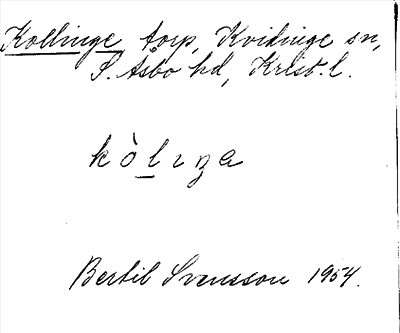 Kollinge torp, Kvidinge sn,
S. Åsbo hd, Krist. l.
kòlıŋa
Bertil Svensson 1954.